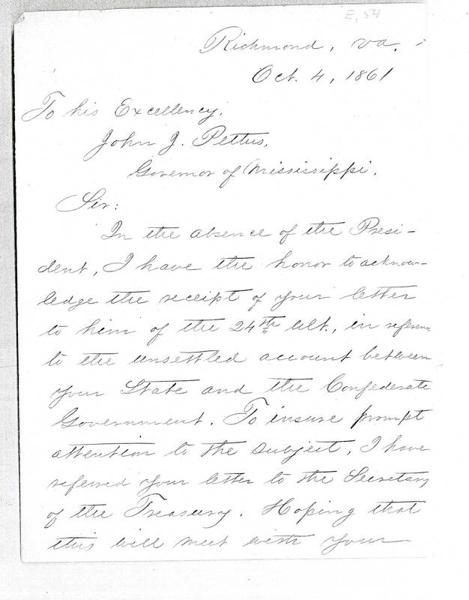 E, 54
Richmond, Va.
Oct. 4, 1861
To his Excellency,
John J. Pettus,
Governor of Mississippi.
Sir:
In the absence of the Presi-
dent, I have the honor to acknow-
ledge the receipt of your letter
to him of the 24th ult., in
to the unsettled account between
your State and the Confederate
Government. To insure prompt
attention to the subject, I have
referred your letter to the Secretary
of the Treasury. Hoping that
this will meet with your